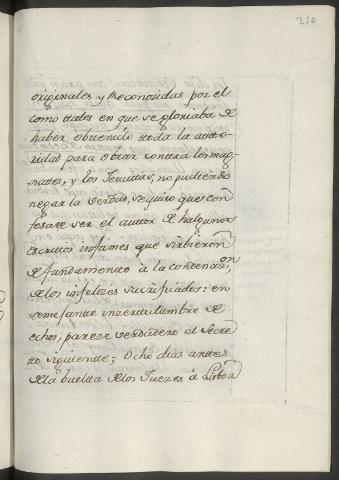 210
originales y Reconocidas por el
como tales en que se gloriaba de
haber obtenido toda la auto-
ridad para obrar contra los mag-
nates, y los Jesuitas, no pudiendo
negar la verdad, se quiso que con
fesase ser el auttor de halgunos
escrittos infames que sirbieron
de fundamento à la condenaz.on
de los infelizes sacrificados: en
semejante inzertidumbre de
echos, pareze verdadero el Secre-
to siguiente; Ocho dias antes
de la buelta de los Juezes à Lisboa